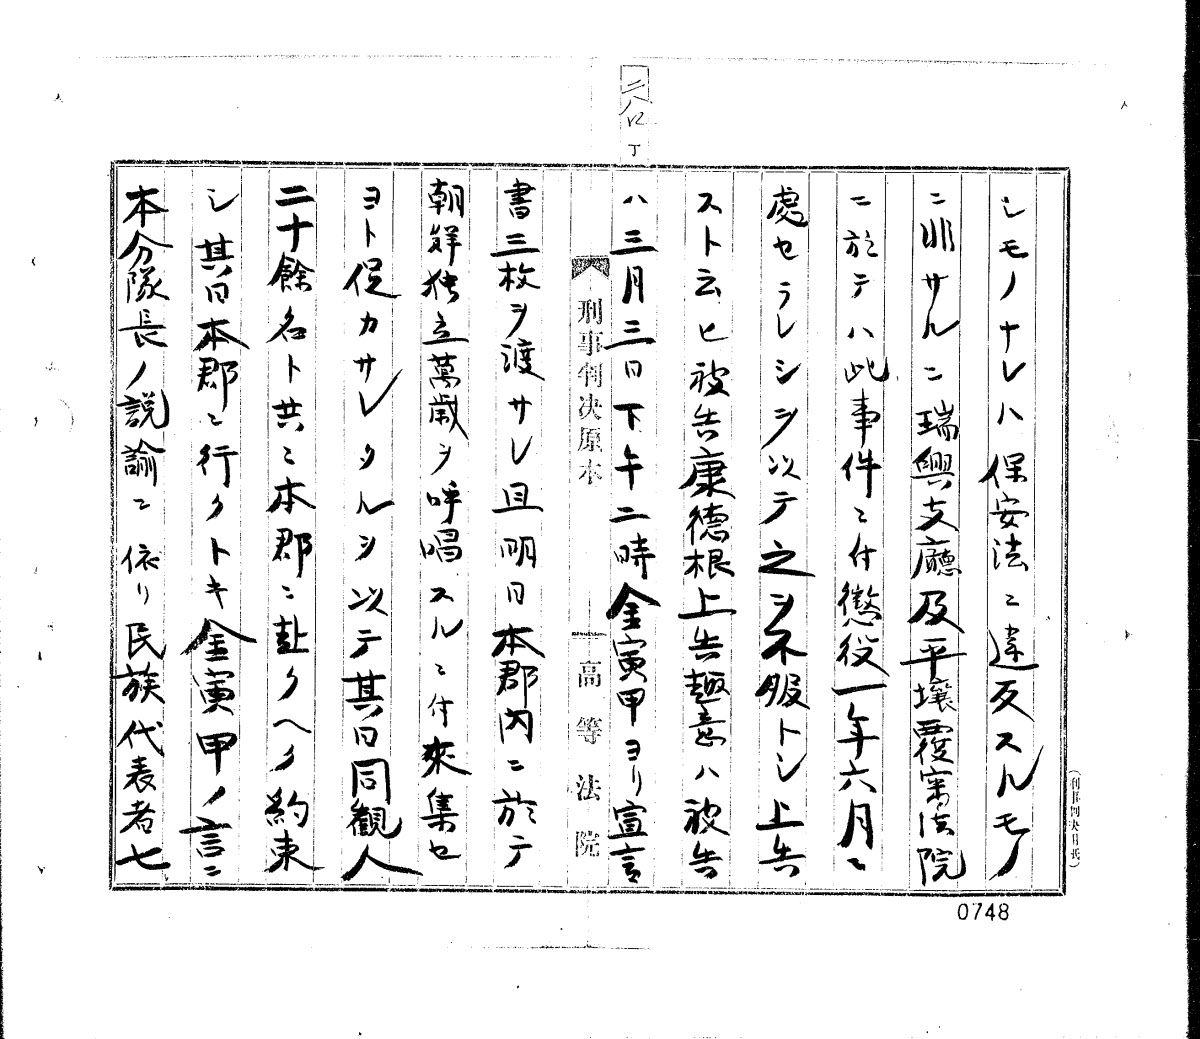 シモノナレハ保安法ニ違反スルモノ
ニ非サルニ瑞興支廳及平壤覆審法院
ニ於テハ此事件ニ付懲役一年六月ニ
處セラレシヲ以テ之ヲ不服トシ上告
スト云ヒ被告康德根上告趣意ハ被告
ハ三月三日下午二時金寅甲ヨリ宣言
刑事判決原本
高等法院
書三枚ヲ渡サレ且明日本郡内ニ於テ
朝鮮独立萬歳ヲ呼唱スルニ付來集セ
ヨト促カサレタルヲ以テ其日同観人
二十餘名ト共ニ本郡ニ赴クヘク約束
シ其日本郡ニ行クトキ金寅甲ノ言ニ
本分隊長ノ説諭ニ依リ民族代表者七
0748